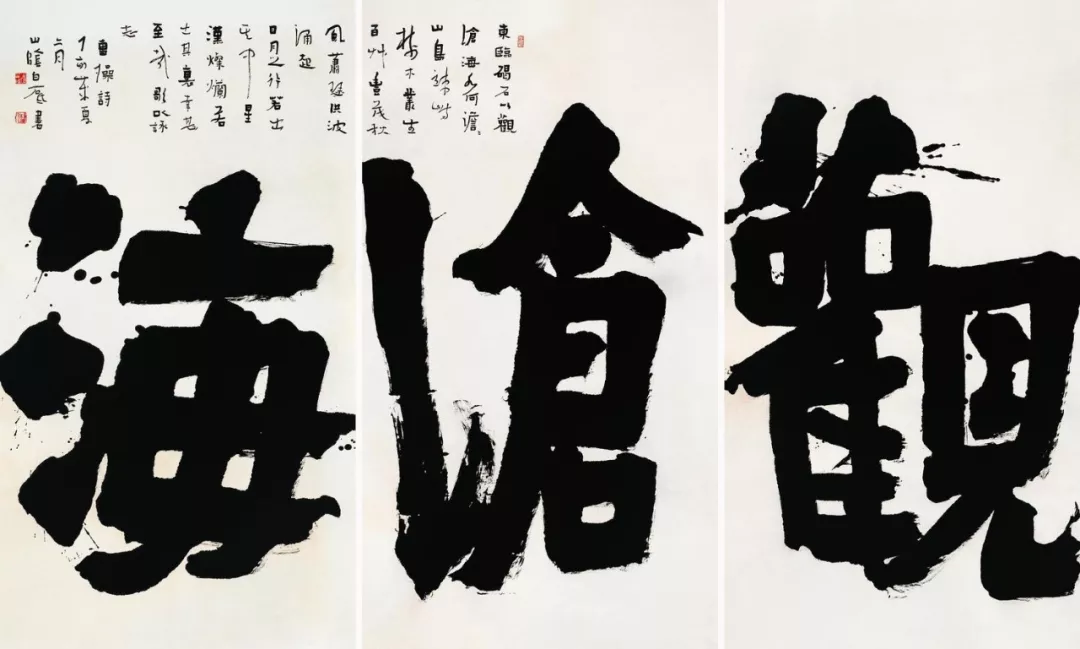 觀滄海
東臨碣石以觀
滄海水何澹〻
山島竦峙
樹木叢生
百艸豐茂秋
風蕭瑟洪波
涌起
日月之行若出
其中星
漢燦爛若
出其裏幸甚
至哉歌以詠
志
曹操詩
丁亥年夏
月
山陰白砥書